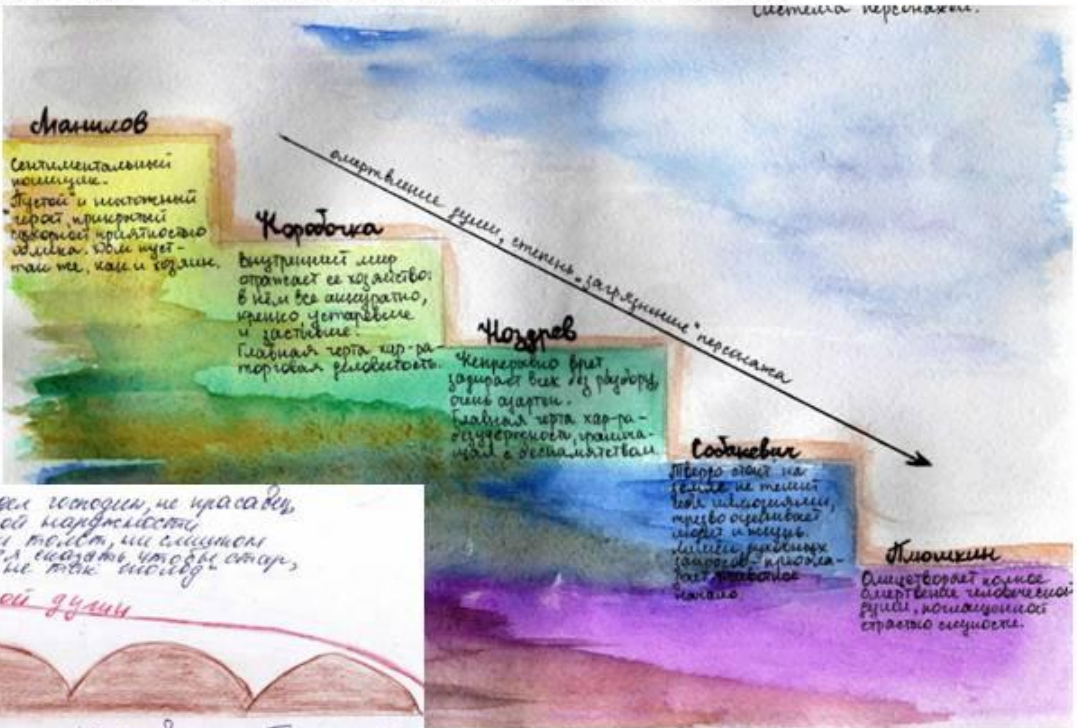 Система персонажей.
Манилов
Сентиментальный
помещик.
"Пустой" и ничтожный
герой, прикрытый
сахарной приятностью
облика. Дом пуст-
так же, как и хозяин.
омертвление души, степень "загрязнения" персонажа
Коробочка
Внутренний мир
отражает её хозяйство:
в нём все аккуратно,
крепко устаревшие
и застывшие.
Главная черта хар-ра-
торговая деловитость.
Ноздрев
Непрерывно врет,
задирает всех без разбору,
очень азартен.
Главная черта хар-ра-
безудержность, гранича-
щая с беспамятством
Собакевич
Твердо стоит на
земле, не тешит
себя иллюзиями,
трезво оценивает
людей и жизнь.
Лишен духовных
запросов-
животное
начало.
Плюшкин
Олицетворяет полное
омертвение человеческой
души, поглощенной
страстью скупости.
господин, не красавец,
ой наружности
и толст, ни слишком
я сказать, чтобы стар,
не так молод"
ой души